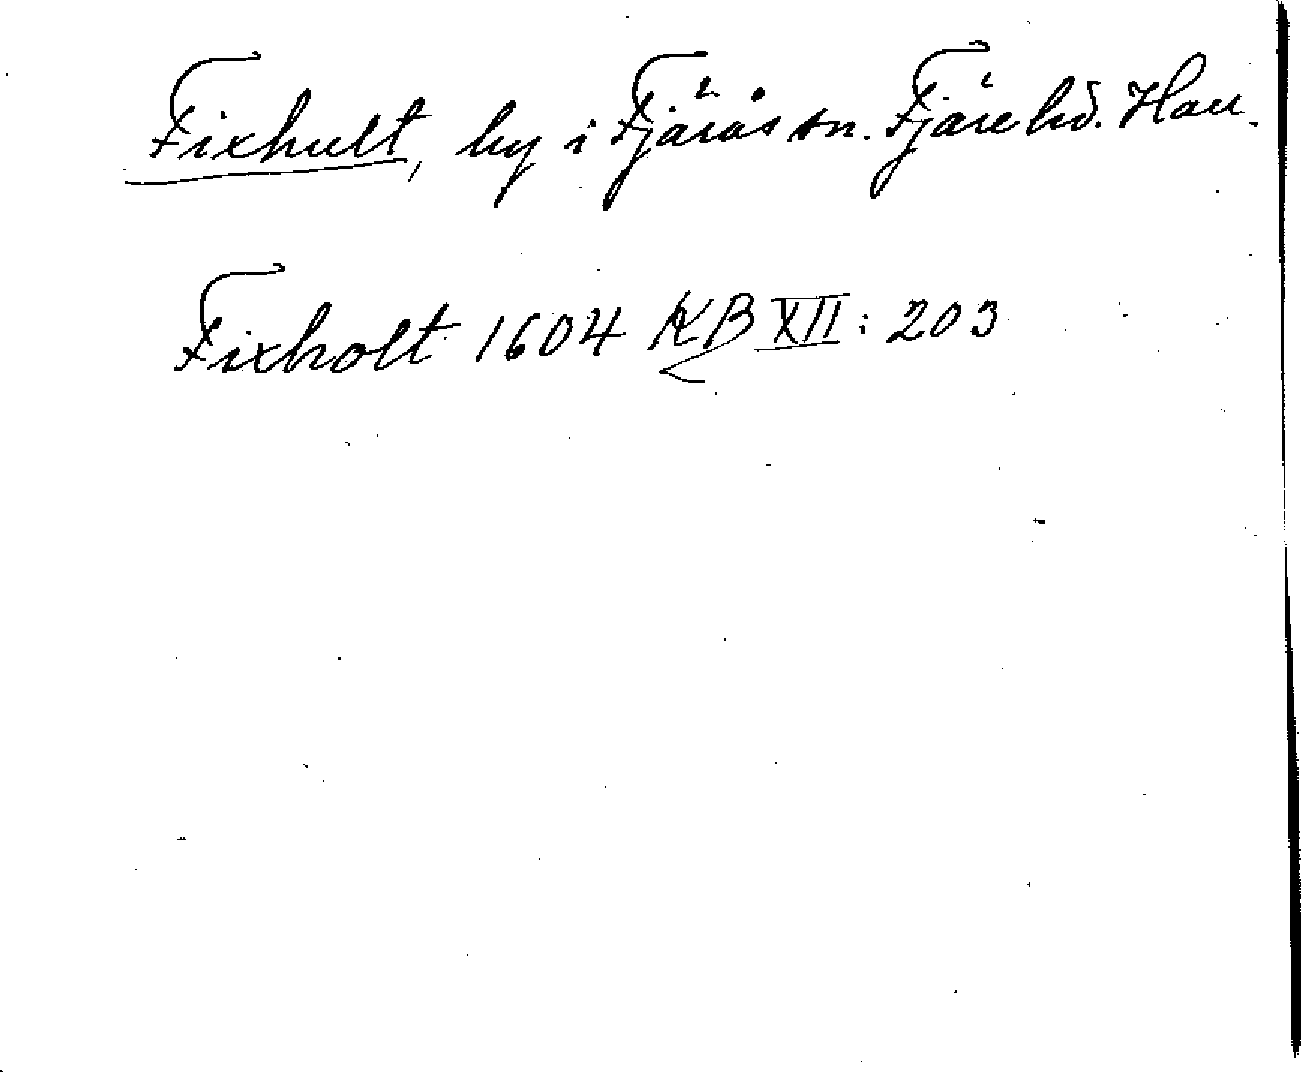 Fixhult, by i Fjärås sn. Fjäre hd. Hall.
Fixholt 1604 KB XII: 203